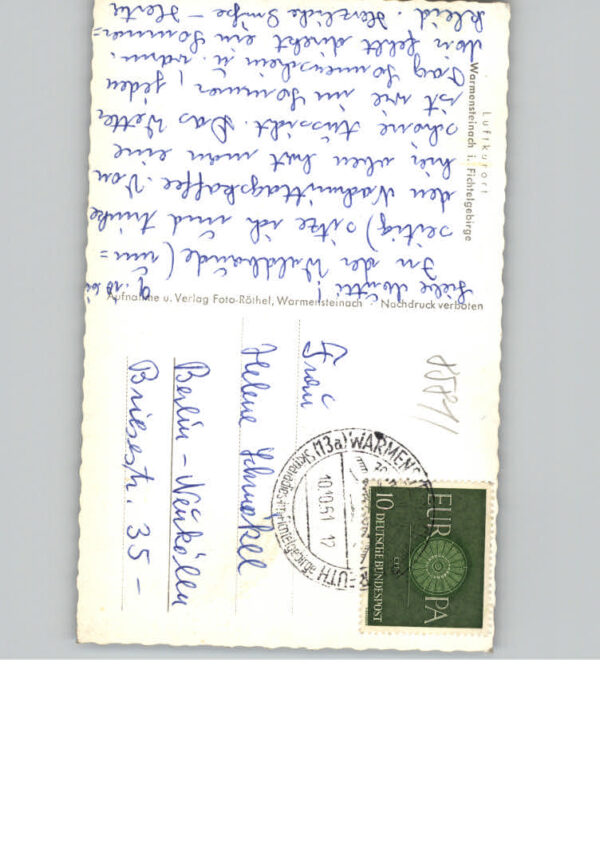 Luftkurort
Warmensteinach i. Fichtelgebirge
9.10.61
Liebe Mutti!
In der Waldbaude (um=
seitig) sitze ich und trinke
den Nachmittagskaffee. Von
hier oben hat man eine
schöne Aussicht. Das Wetter
ist wie im Sommer, jeden
Tag Sonnenschein u. warm.
Mein fehlt direkt ein Sommer=
kleid. Herzliche Grüße - Herta
Aufnahme u. Verlag Foto-Röthel, Warmensteinach · Nachdruck verboten
8581/
(13a) WARMENS
10.10.61 12
EUROPA
CEPT
10 DEUTSCHE BUNDESPOST
Frau
Helene Schnökel
Berlin - Neukölln
Briesestr. 35 -